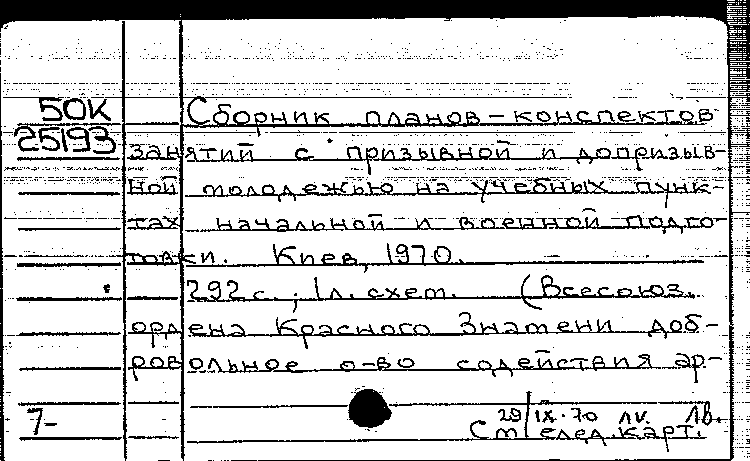 50К
25193
Сборник планов-конспектов
занятий с призывной и допризыв-
ной молодежью на учебных пунк-
тах начальной и военной подго-
товки. Киев, 1970.
292 с.; 1 л. схем. (Всесоюз.
ордена Красного Знамени доб-
ровольное о-во содействия ар-
7-
29/IX-70 лв. 1в.
См след. карт.